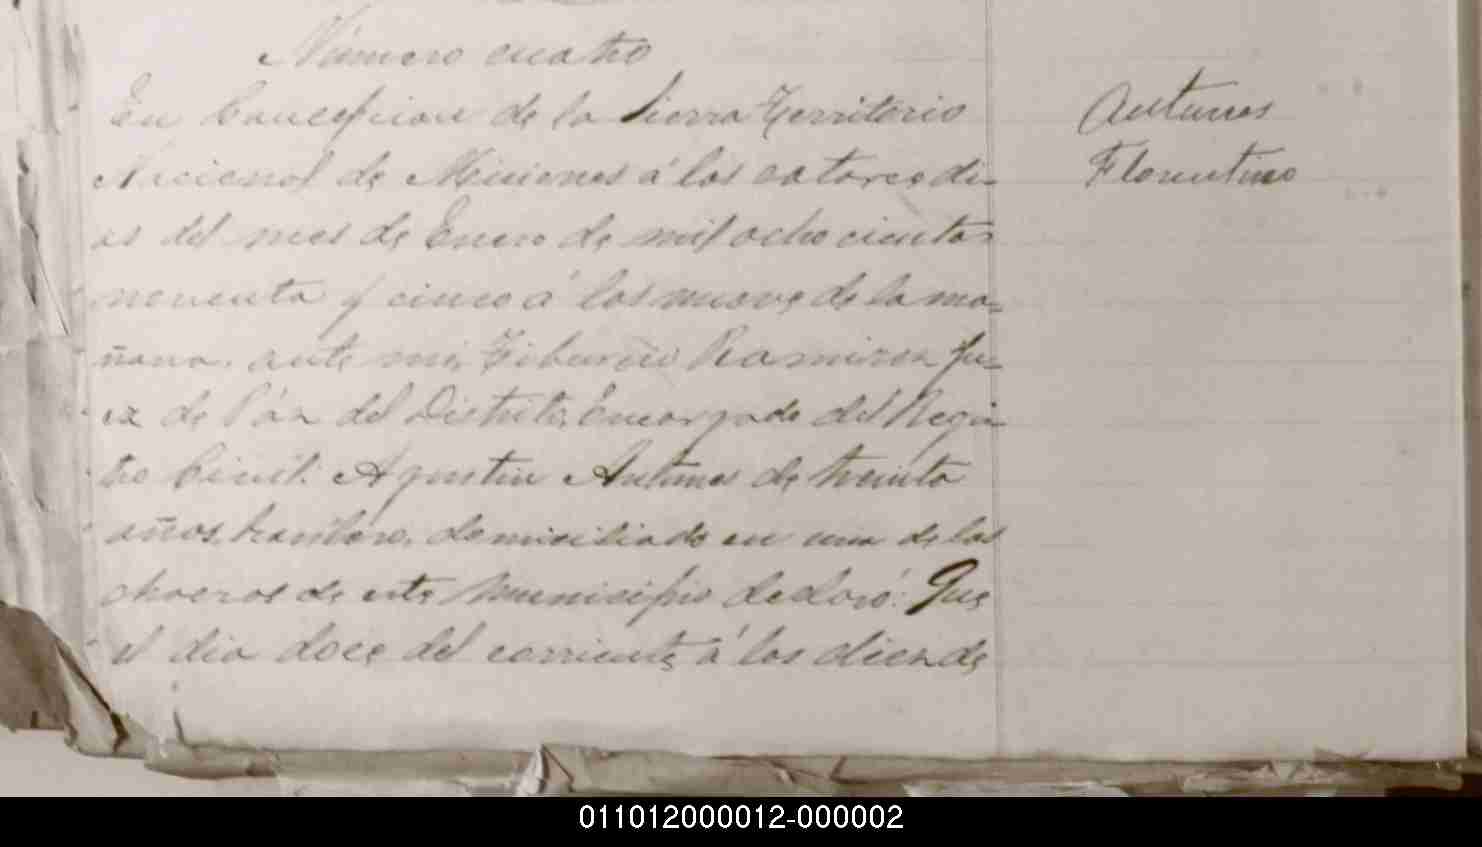 Número cuatro
En Concepcion de la Sierra Territorio
Nacional de Misiones á los catorce di-
as del mes de Enero de mil ocho cientos
noventa y cinco á las nueve de la ma-
ñana, ante mi, Tiburcio Ramirez Ju-
ez de Páz del Distrito, Encargado del Regis
tro Civil. Agustin Antunes de treinta
años, domiciliado en una de las
chacras de este Municipio declaró: Que
el dia doce del corriente á las diez de
Antunes
Florentino
011012000012-000002